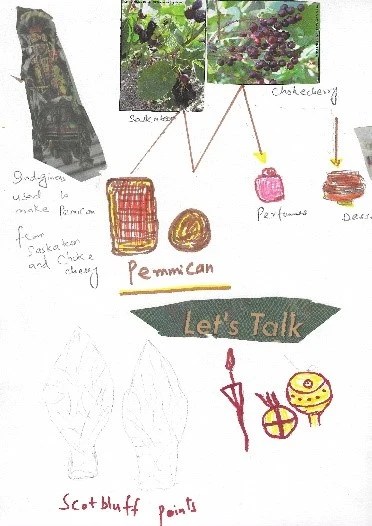 Saskatoon
Chokecherry
Indiginous
used to
make Pemican
from
Saskatoon
and Choke
cherry
Perfumes
Pemmican
Let's Talk
Scotbluff points